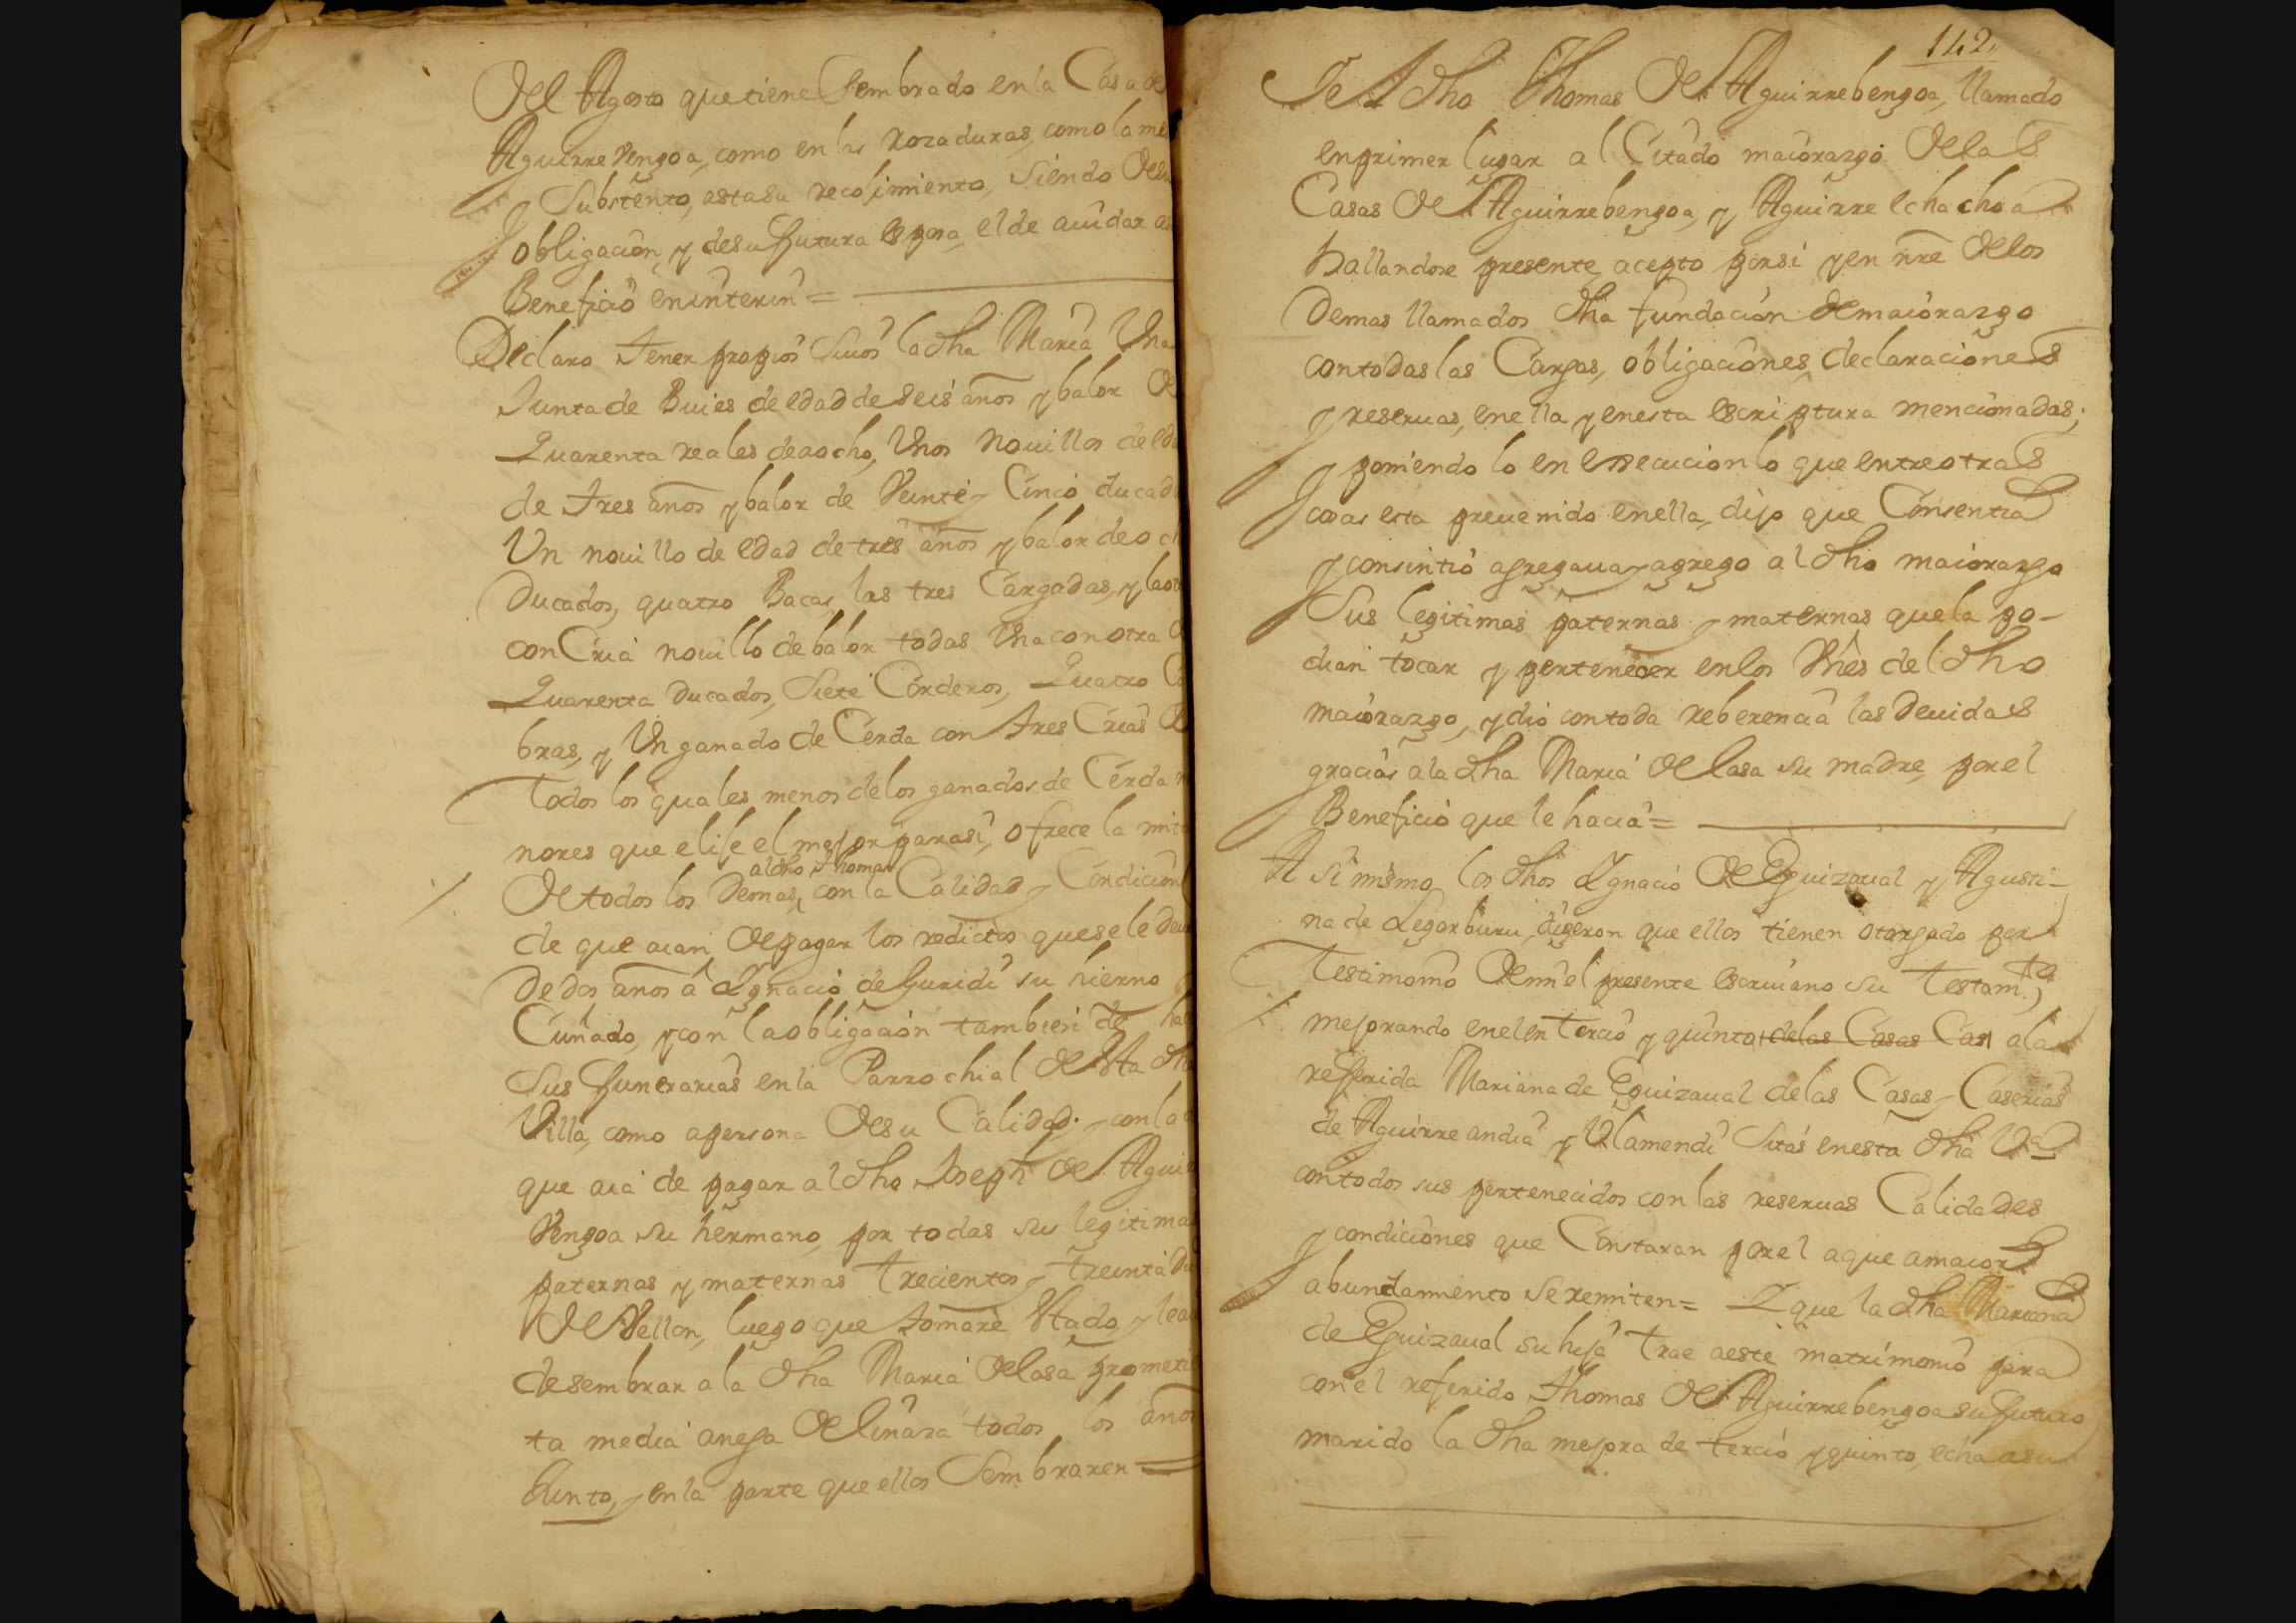 Del Agosto que tiene Sembrado en la Casa de
Aguirrevengoa, como en las rozaduras, como la mi
y Substento, asta su recojimiento, Siendo de su
y obligacion, y de su futura esposa, el de aiudar a
Beneficio en interin =
Declaro tener propios suios la dha Maria Una
Junta de Buies de edad de seis años y balor de
Quarenta reales de a ocho, Unos Nouillos de eda
de tres años y balor de Veinte y Cinco ducad
Un nouillo de edad de tres años y balor de och
Ducados, quatro Bacas las tres Cargadas, y la ot
con Cria nouillo de balor todas Una con otra
Quarenta Ducados, Siete Corderos, Quatro Ca
bras, y Un ganado de Cerda con tres Crias
todos los quales menos de los ganados de Cerda m
nores que elije el mejor para si, ofrece la mita
al dho Thomas
De todos los Demas, con la Calidad y Condicion
de que aian de pagar los redictos que se le deue
De dos años â Ygnacio de Guridi su hierno
Cuñado, y con la obligacion tambien de ha
Sus funerarias en la Parrochial de Esta dha
Villa, como a persona de su Calidad y con la
que aia de pagar al dho Joseph de Aguir
Vengoa su hermano, por todas sus legitimas
paternas y maternas trecientos y treinta Du
De Vellon, luego que tomare Estado, y le a
de sembrar a la dha Maria de lasa
ta media anega de linaza todos los años
Junto, y en la parte que ellos Sembraren =
142
Y el dho Thomas de Aguirrebengoa, llamado
en primer lugar al Citado maiorazgo de las
Casas de Aguirrebengoa, y Aguirre echachoa
hallandose presente acepto por si y en nre de los
Demas llamados dha fundacion de maiorazgo
con todas las Cargas, obligaciones, declaraciones
y reseruas, en ella y en esta escriptura mencionadas;
y poniendo lo en execucion lo que entre otras
cosas esta preuenido en ella, dijo que Consentia
y consintio agregaua y agrego al dho maiorazgo
Sus legitimas paternas y maternas que la po-
dian tocar y pertenecer en los Vnes del dho
maiorazgo, y dio con toda reberencia las deuidas
gracias a la dha Maria de lasa su madre, por el
Beneficio que le hacia =
Asi mismo los dhos Ygnacio de Eguizaual y Agusti-
na de Legorburu, digeron que ellos tienen otorgado por
Testimonio de mi el presente escriuano su Testamto
mejorando en el en tercio y quinto de las Casas Cas a la
refferida Mariana de Eguizaual de las Casas y Caserias
de Aguirre andia y Vlamendi Sitas en esta dha Va
con todos sus pertenecidos con las reseruas Calidades
y condiciones que Constaran por el a que a maior
abundamiento se remiten = Y que la dha Mariana
de Eguizaual su hija trae a este matrimonio para
con el referido Thomas de Aguirrebengoa su futuro
marido la dha mejora de tercio y quinto, echa a su